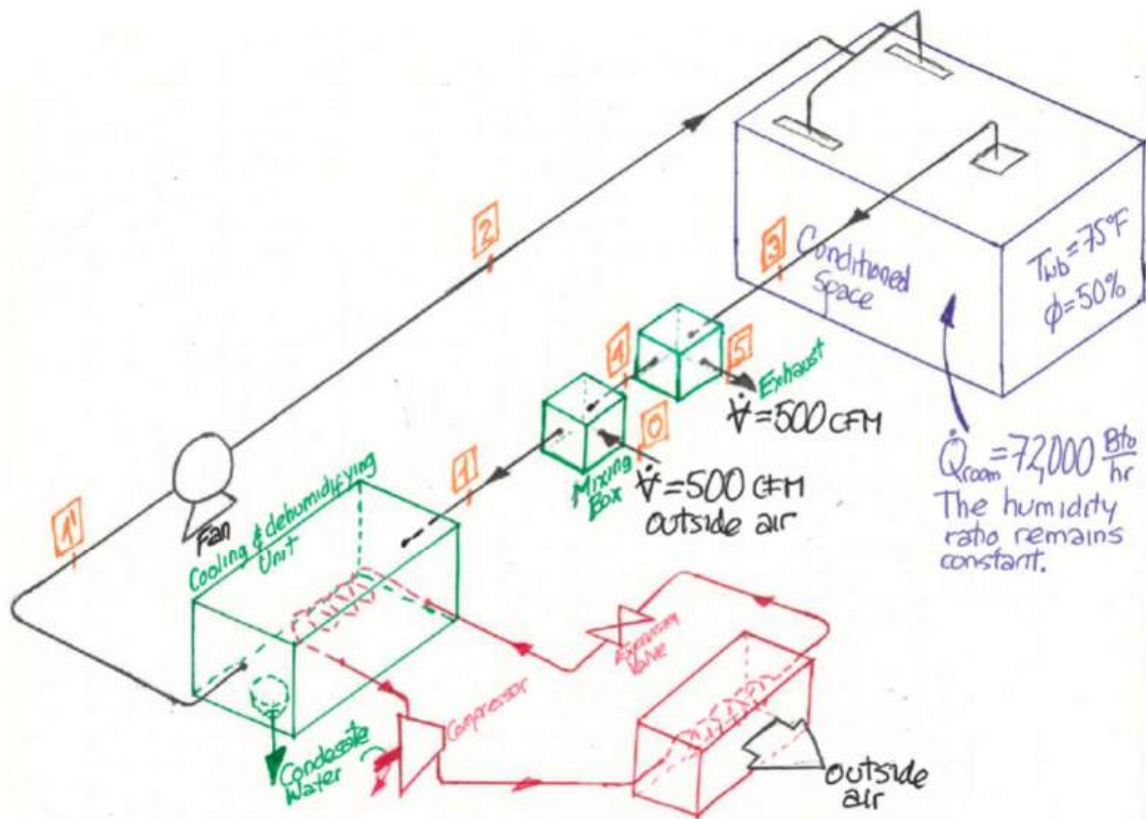 2
3
Conditioned
space
T_wb=75°F
ϕ=50%
4
5
Exhaust
V̶̇=500 CFM
0
Mixing
Box
V̶̇=500 CFM
outside air
1
Q̇room=72,000 Btu/hr
The humidity
ratio remains
constant.
Fan
1'
Cooling & dehumidifying
Unit
Expansion
Valve
Compressor
Condesate
Water
outside
air